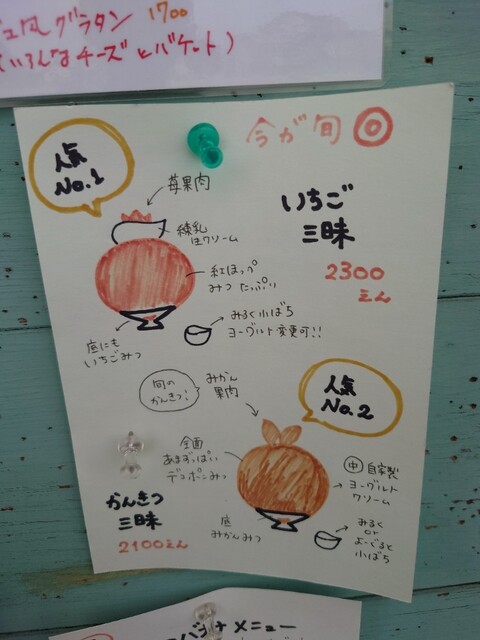 グラタン 1700
いろんなチーズとバケット)
今が旬◎
人気
No.1
苺果肉
いちご
三昧
2300
えん
練乳
生クリーム
紅ほっぺ
みつ たっぷり
底にも
いちごみつ
みるく小ばち
ヨーグルト変更可!!
旬の
かんきつ!
みかん
果肉
人気
No.2
全面
あまずっぱい
デコポンみつ
中 自家製
ヨーグルト
クリーム
かんきつ
三昧
2100えん
底
みかんみつ
みるく
or
よーぐると
小ばち
メニュー